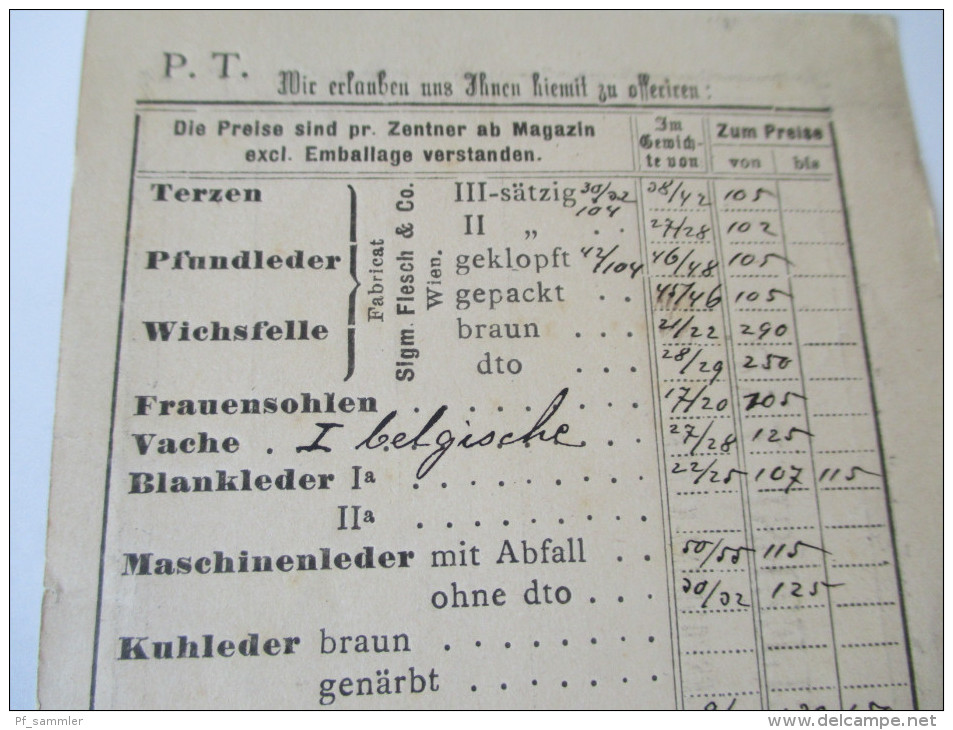 P. T.
Wir erlauben uns Ihnen hiemit zu offeriren:
Die Preise sind pr. Zentner ab Magazin
excl. Emballage verstanden.
Im
Gewich-
te von
Zum Preise
von bis
Fabricat
Sigm. Flesch & Co.
Wien.
Terzen III-sätzig 30/32 38/42 105
104
II „ . . 27/28 102
Pfundleder geklopft 42/104 46/48 105
gepackt . . 45/46 105
Wichsfelle braun . . . 21/22 290
dto . . . 28/29 250
Frauensohlen . . . . . . . . 17/20 105
Vache . I belgische . . 27/28 125
Blankleder Ia . . . . . . . . . 22/25 107 115
IIa . . . . . . . . .
Maschinenleder mit Abfall . . 50/55 115
ohne dto . . . 30/32 125
Kuhleder braun . . . . . . . .
genärbt . . . . . . .
Pf_sammler
www.delcampe.net